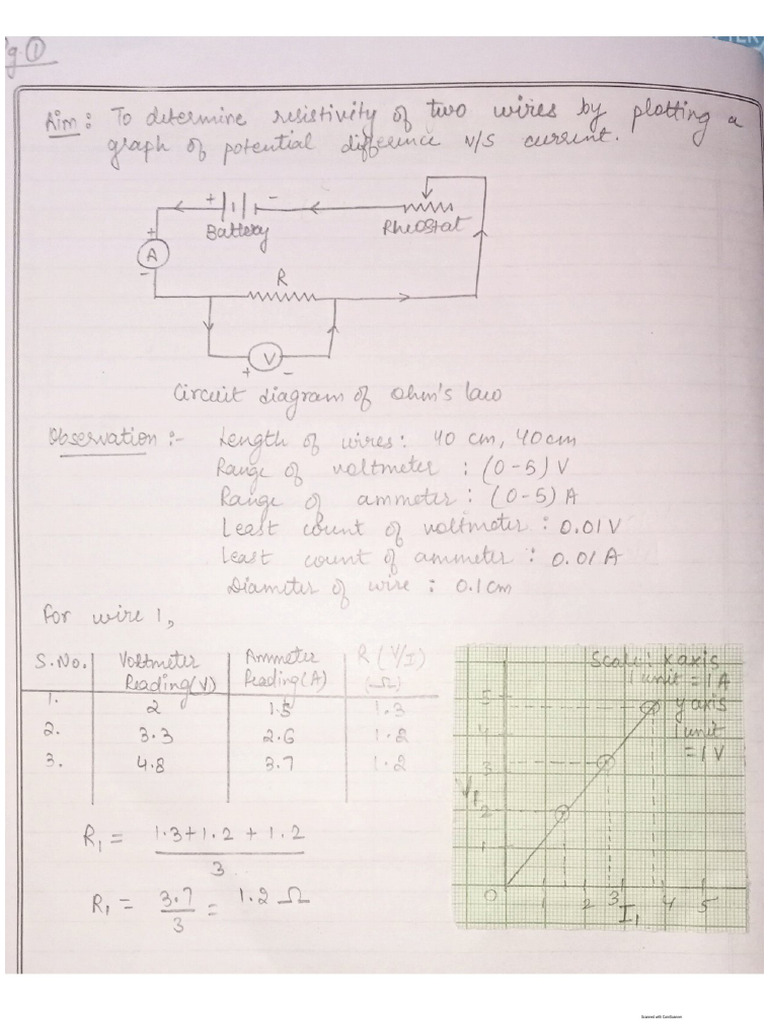 Pg ①
Aim: To determine resistivity of two wires by plotting a
graph of potential difference v/s current.
+ -
Battery
Rheostat
+
A
-
R
V
+ -
Circuit diagram of Ohm's law
Observation :- Length of wires: 40 cm, 40cm
Range of voltmeter : (0-5) V
Range of ammeter : (0-5) A
Least count of voltmeter : 0.01 V
Least count of ammeter : 0.01 A
Diameter of wire : 0.1 cm
For wire 1,
S.No. Voltmeter Reading(V) Ammeter Reading(A) R (V/I) (Ω)
1. 2 1.5 1.3
2. 3.3 2.6 1.2
3. 4.8 3.7 1.2
R₁ = 1.3+1.2+1.2 / 3
R₁ = 3.7 / 3 = 1.2 Ω
Scale: x axis
1 unit = 1 A
y axis
1 unit
= 1 V
5
4
3
V₁
2
1
0 1 2 3 4 5
I₁
Scanned with CamScanner